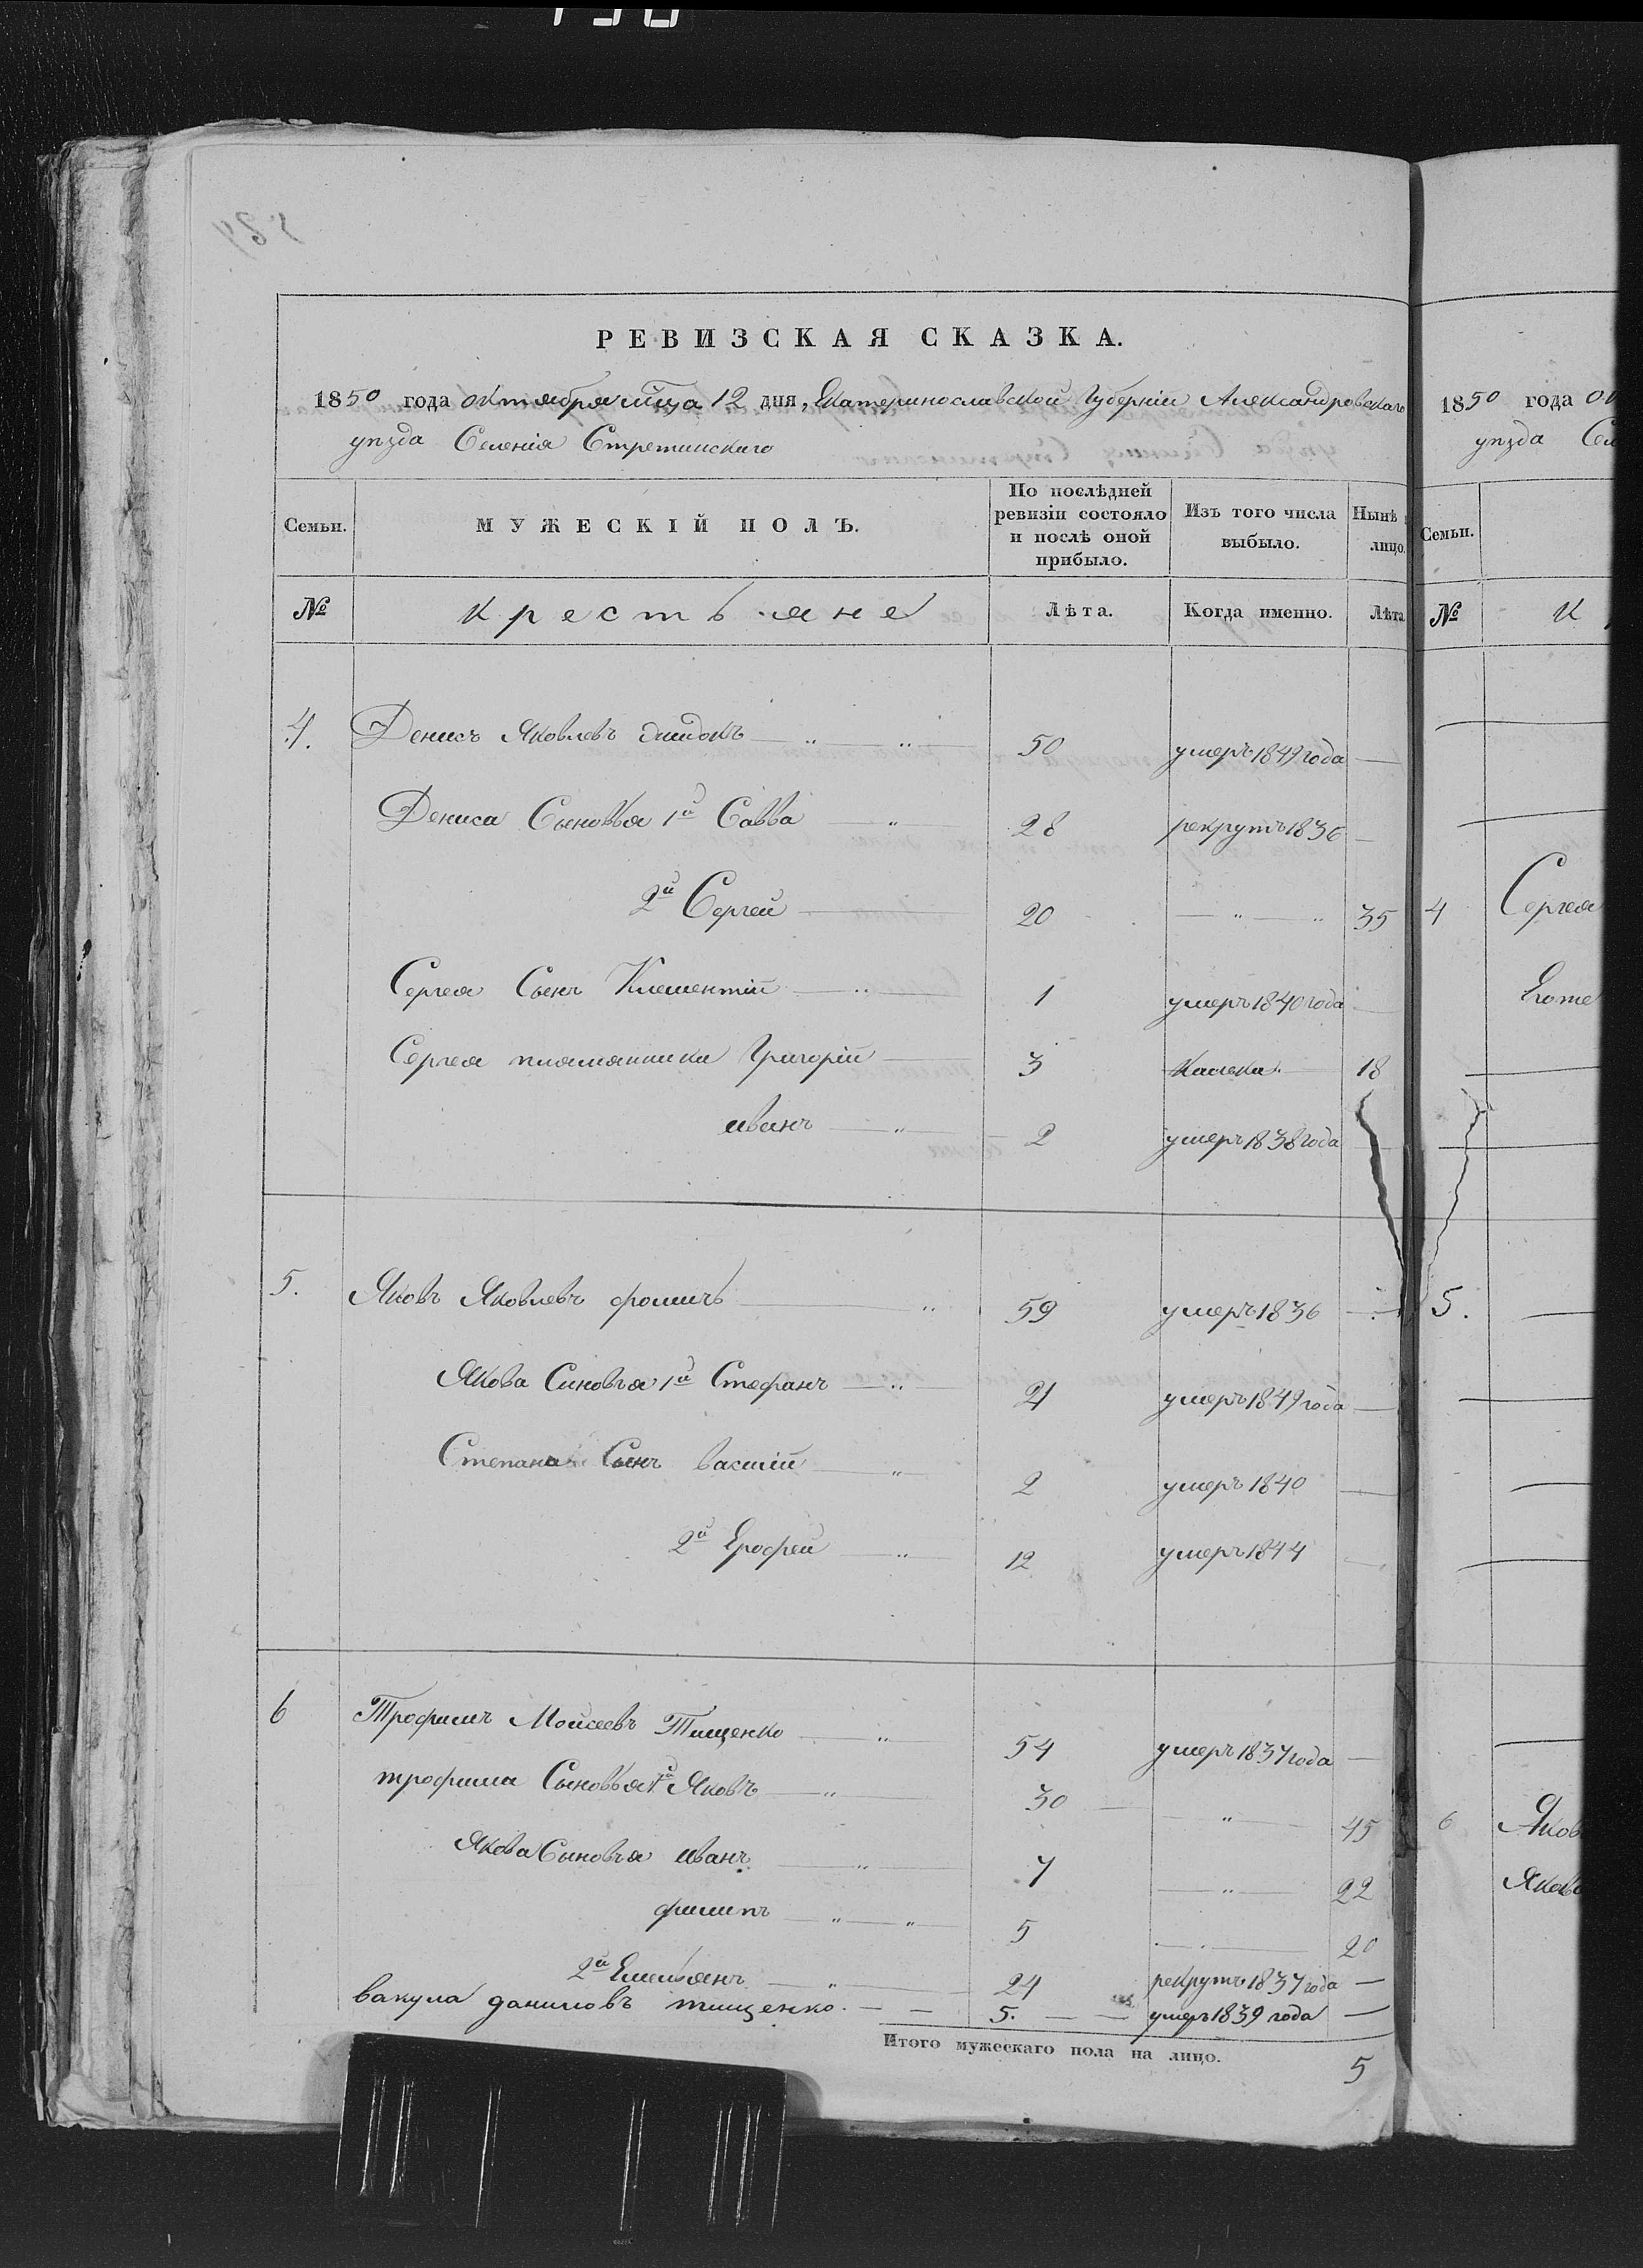 РЕВИЗСКАЯ СКАЗКА.
1850 года октября мѣсяца 12 дня, Екатеринославской Губерніи Александровскаго
уѣзда Селенія Стретинскаго
Семьи.
МУЖЕСКІЙ ПОЛЪ.
По послѣдней ревизіи состояло и послѣ оной прибыло.
Изъ того числа выбыло.
Нынѣ лицо.
№
Крестьяне
Лѣта.
Когда именно.
Лѣта
4. Денисъ Яковлевъ 50 умеръ 1849 года —
Дениса Сыновья 1й Савва — 28 рекрутъ 1836 —
2й Сергей — 20 — 35
Сергея Сынъ Климентій — 1 умеръ 1840 года —
Сергея племянники Григорій — 3 Калека. 18
иванъ — 2 умеръ 1838 года
5. Яковъ Яковлевъ — 59 умеръ 1836 —
Якова Синовья 1й Стефанъ — 21 умеръ 1849 года —
Степана Сынъ василій — 2 умеръ 1840 —
2й Ерофей — 12 умеръ 1844 —
6 Трофимъ Мойсеевъ Тищенко — 54 умеръ 1837 года —
трофима Сыновья 1й Яковъ — 30 — 45
Якова Сыновья иванъ — 7 — 22
филипъ — 5 — 20
2й Емельянъ — 24 рекрутъ 1837 года —
вакула даниловъ тищенко. — — 5. — — умеръ 1839 года —
Итого мужескаго пола на лицо. 5
1850 года
уѣзда
Семьи.
№
К
4 Сергея
5.
6 Яков
Яков